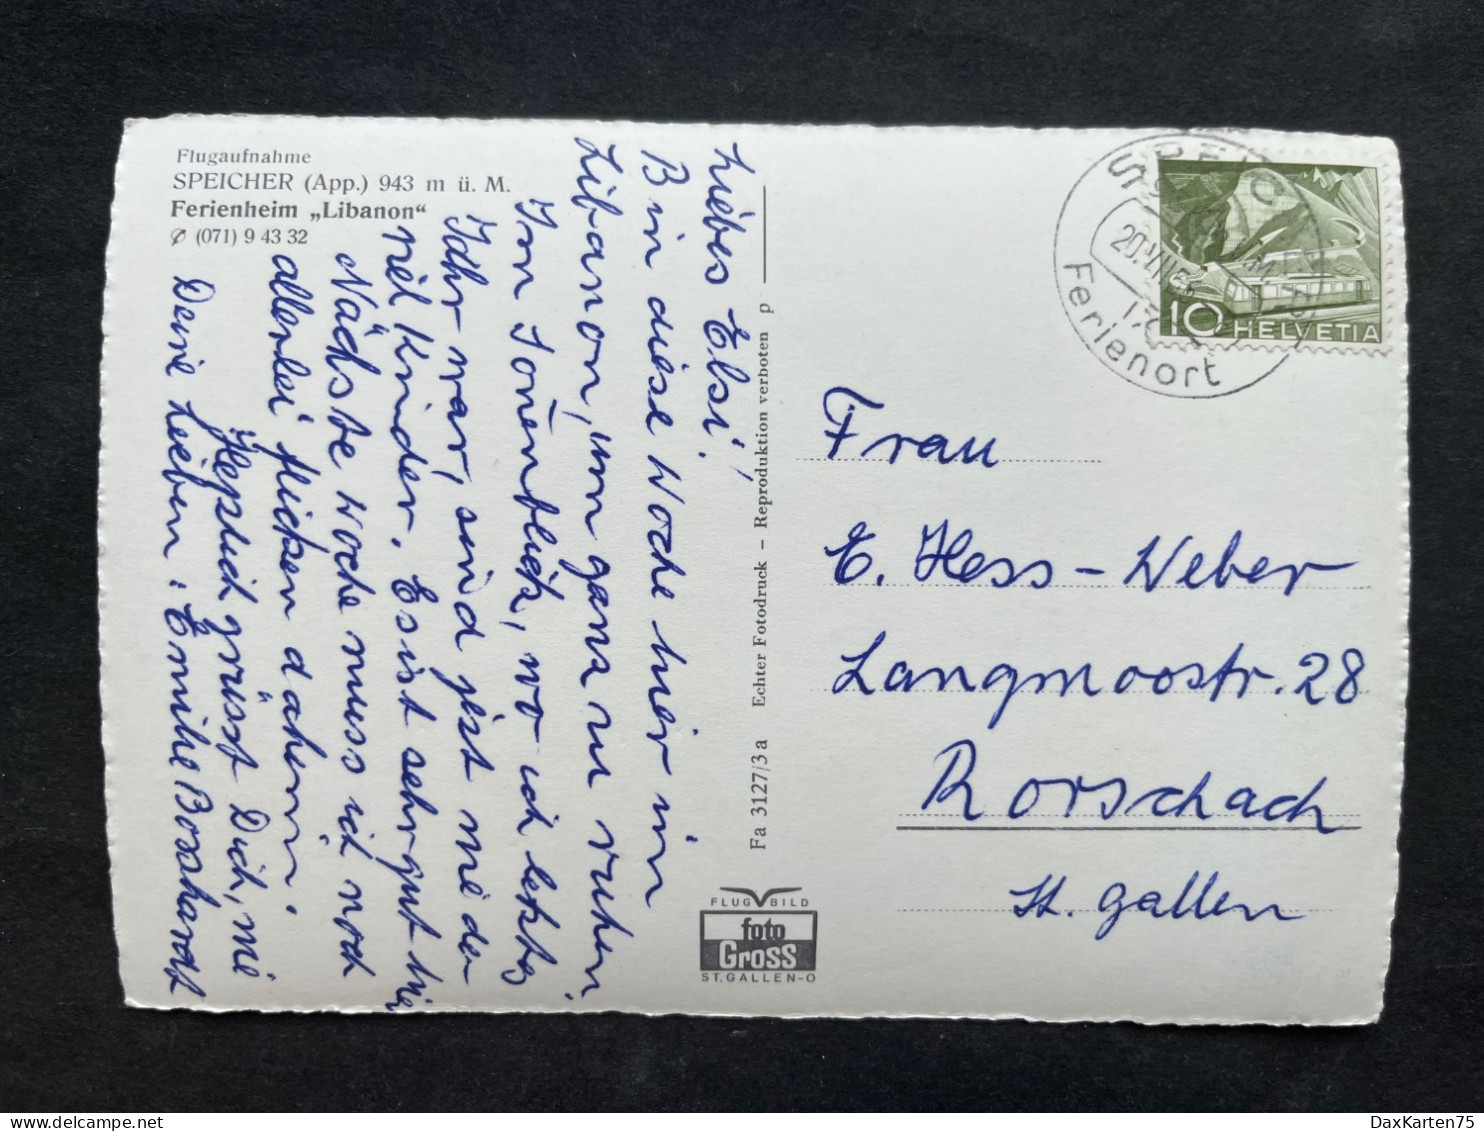 Flugaufnahme
SPEICHER (App.) 943 m ü. M.
Ferienheim „Libanon“
(071) 9 43 32
Liebes Elsi!
Bin diese Woche hier im
Libanon, um ganz zu ruhen.
Im Sonentlich, wo ich letztes
Jahr war, sind jetzt wieder
viel Kinder. Es ist sehr gut hier
Nächste Woche muss ich noch
allerlei flicken daheim.
Herzlich grüsst Dich, wie
Deine Lieben: Emilie Bosshardt
Fa 3127/3a Echter Fotodruck – Reproduktion verboten p
FLUG BILD
foto
Gross
ST.GALLEN-O
SPEICHER
20.VIII.
Ferienort
10 HELVETIA
Frau
E. Hess-Weber
Langmoostr. 28
Rorschach
St. Gallen
DaxKarten75